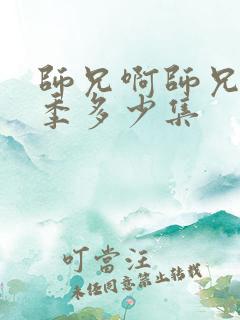 師兄啊師兄
季多少集
叮當汪
未经同意禁止转载